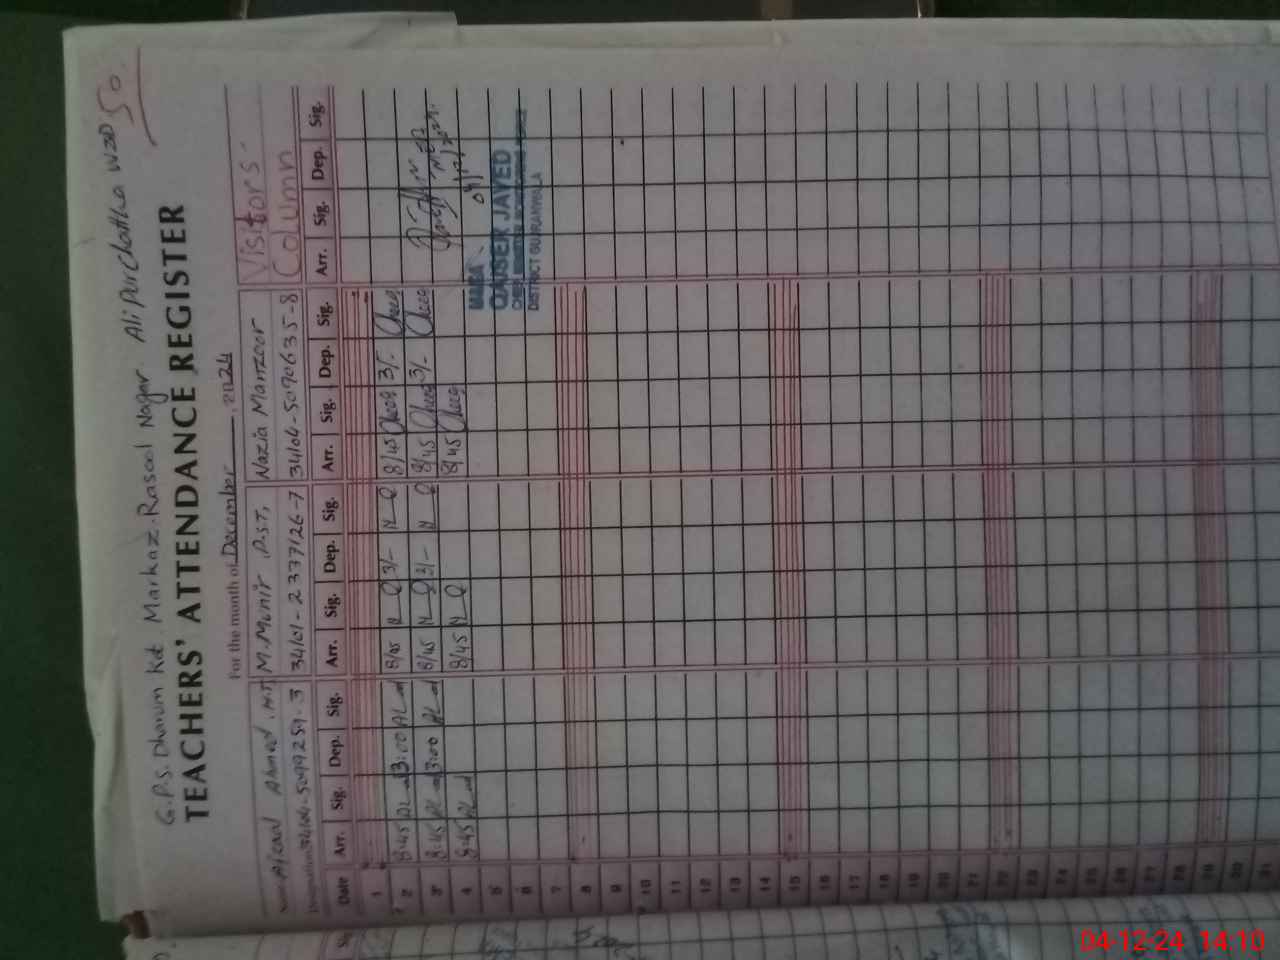 50
G.P.S. Dharum Kot Markaz Rasool Nagar Alipurchattha WZD
TEACHERS' ATTENDANCE REGISTER
For the month of December, 2024
Afzaal Ahmed H.T M.Munir P.S.T, Nazia Manzoor Visitors
34104-5099259-3 34101-2337126-7 34104-5090635-8 Column
Date Arr. Sig. Dep. Sig. Arr. Sig. Dep. Sig. Arr. Sig. Dep. Sig. Arr. Sig. Dep. Sig.
1
2 8:45 3:00 8/45 3/- 8/45 3/-
3 8:45 3:00 8/45 3/- 8/45 3/-
4 8:45 8/45 8/45 04/12/2024
5
6
7
8
9
10
11
12
13
14
15
16
17
18
19
20
21
22
23
24
25
26
27
28
29
30
31
QAUSER JAVED
DISTRICT GUJRANWALA
Sig
04-12-24 14:10